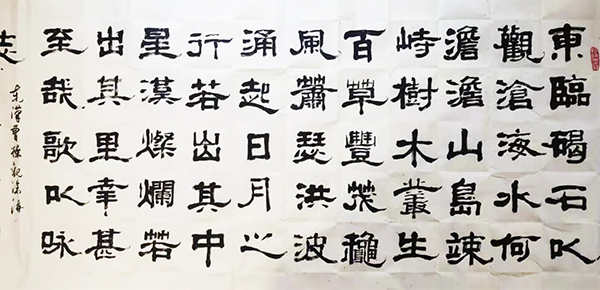 東臨碣石以
觀滄海水何
澹澹山島竦
峙樹木叢生
百草豐茂龝
風蕭瑟洪波
涌起日月之
行若出其中
星漢燦爛若
出其里幸甚
至哉歌以咏
志
漢曹操觀滄海